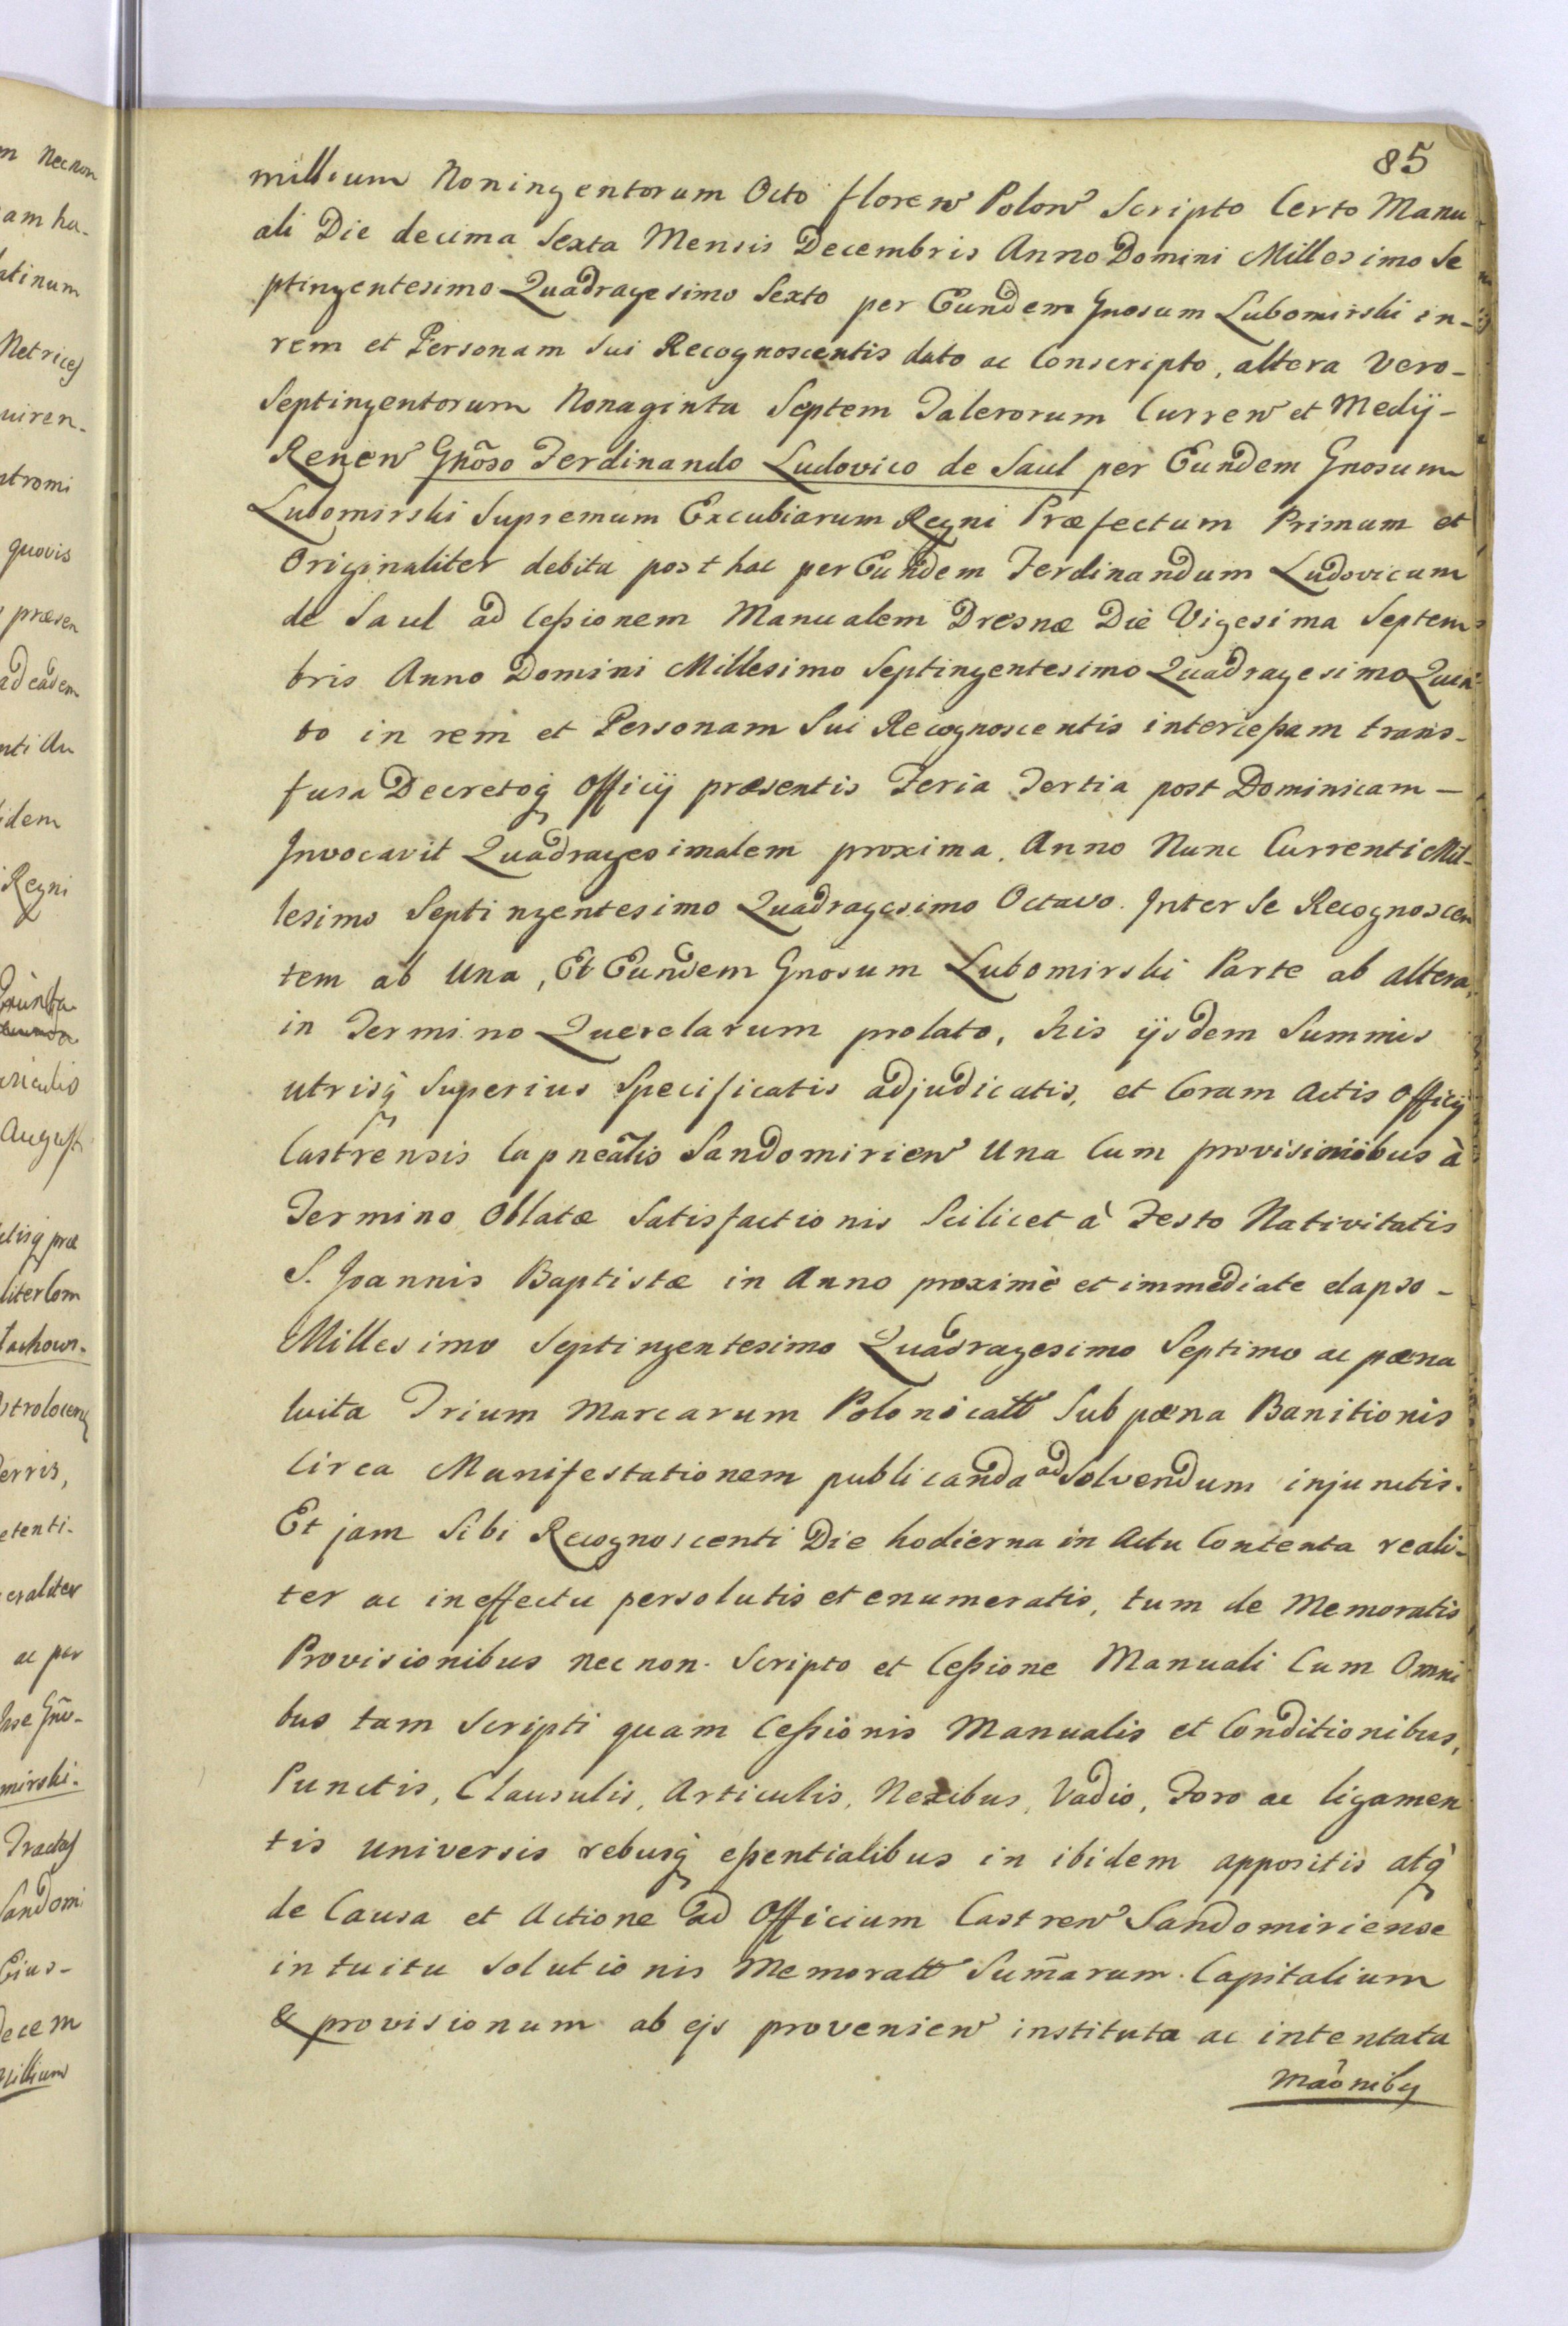 85
millium Noningentorum Octo floren Polon Scripto Certo Manu
ali Die decima Sexta Mensis Decembris Anno Domini Millesimo Se
ptingentesimo Quadragesimo Sexto per Eundem Gnosum Lubomirski in-
rem et Personam Sui Recognoscentis dato ac Conscripto, altera Vero-
Septingentorum Nonaginta Septem Talerorum Curren et Medij-
Renen Gnõso Ferdinando Ludovico de Saul per Eundem Gnosum
Lubomirski Supremum Excubiarum Regni Præfectum Primum et
Originaliter debita post hac per Eundem Ferdinandum Ludovicum
de Saul ad Ceßionem Manualem Dresnæ Die Vigesima Septem
bris Anno Domini Millesimo Septingentesimo Quadragesimo Quin
to in rem et Personam Sui Recognoscentis interceßam trans-
fusa Decretoq Officij præsentis Feria Tertia post Dominicam-
Invocavit Quadragesimalem proxima, Anno Nunc Currenti Mil-
lesimo Septingentesimo Quadragesimo Octavo. Inter Se Recognoscen
tem ab Una, Et Eundem Gnosum Lubomirski Parte ab altera,
in Termino Querelarum prolato, his ijsdem Summis
utrisq Superius Specificatis adjudicatis, et Coram Actis Officij
Castrensis Capneãlis Sandomirien Una Cum provisionibus à
Termino Oblatæ Satisfactionis Scilicet à Festo Nativitatis
S. Joannis Baptistæ in Anno proximè et immediate elapso-
Millesimo Septingentesimo Quadragesimo Septimo ac pæna
luita Trium Marcarum Polonicatt Sub pæna Banitionis
Circa Manifestationem publicanda ad Solvendum injunctis.
Et jam Sibi Recognoscenti Die hodierna in Actu Contenta reali-
ter ac in effectu persolutis et enumeratis, tum de Memoratis
Provisionibus nec non Scripto et Ceßione Manuali Cum Omni
bus tam Scripti quam Ceßionis Manualis et Conditionibus,
Punctis, Clausulis, Articulis, Nexibus, Vadio, Foro ac ligamen
tis universis rebusq eßentialibus in ibidem appositis atq
de Causa et Actione ad Officium Castren Sandomiriense
intuitu Solutionis Memoratt Sum̃arum Capitalium
& provisionum ab ejs provenien instituta ac intentata
maõniby